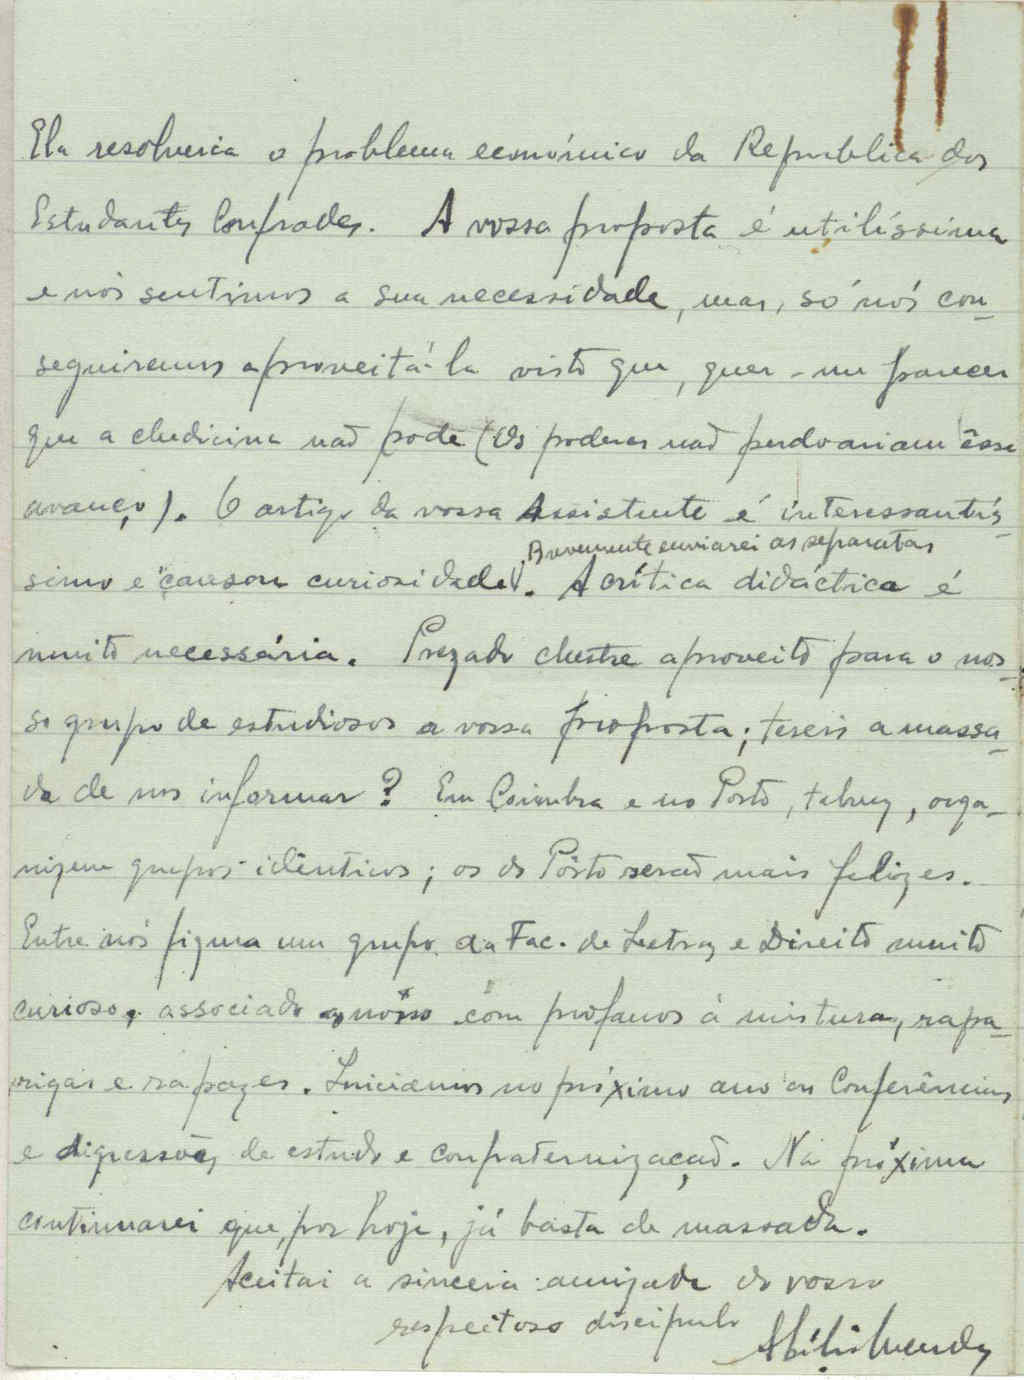 Ela resolveria o problema económico da Republica dos
Estudantes Confrades. A vossa proposta é utilíssima
e nós sentimos a sua necessidade, mas, só nós con-
seguiremos aproveitá-la visto que, quer-me parecer
que a Medicina não pode (Os poderes não perdoariam êsse
avanço). O artigo da vossa Assistente é interessantís-
Brevemente enviarei as separatas
simo e causou curiosidade. A crítica didáctica é
muito necessária. Prezado Mestre aproveito para o nos-
so grupo de estudiosos a vossa proposta; tereis a massa-
da de nos informar? Em Coimbra e no Porto, talvez, orga-
nizem grupos idênticos; os do Pôrto serão mais felizes.
Entre nós figura um grupo da Fac. de Letras e Direito muito
curioso, associado ao nosso com profanos à mistura, rapa-
rigas e rapazes. Iniciamos no próximo ano as Conferências
e digressões de estudo e confraternização. Na próxima
continuarei que, por hoje, já basta de massada.
Aceitai a sincera amizade do vosso
respeitoso discipulo
Abílio Mendes